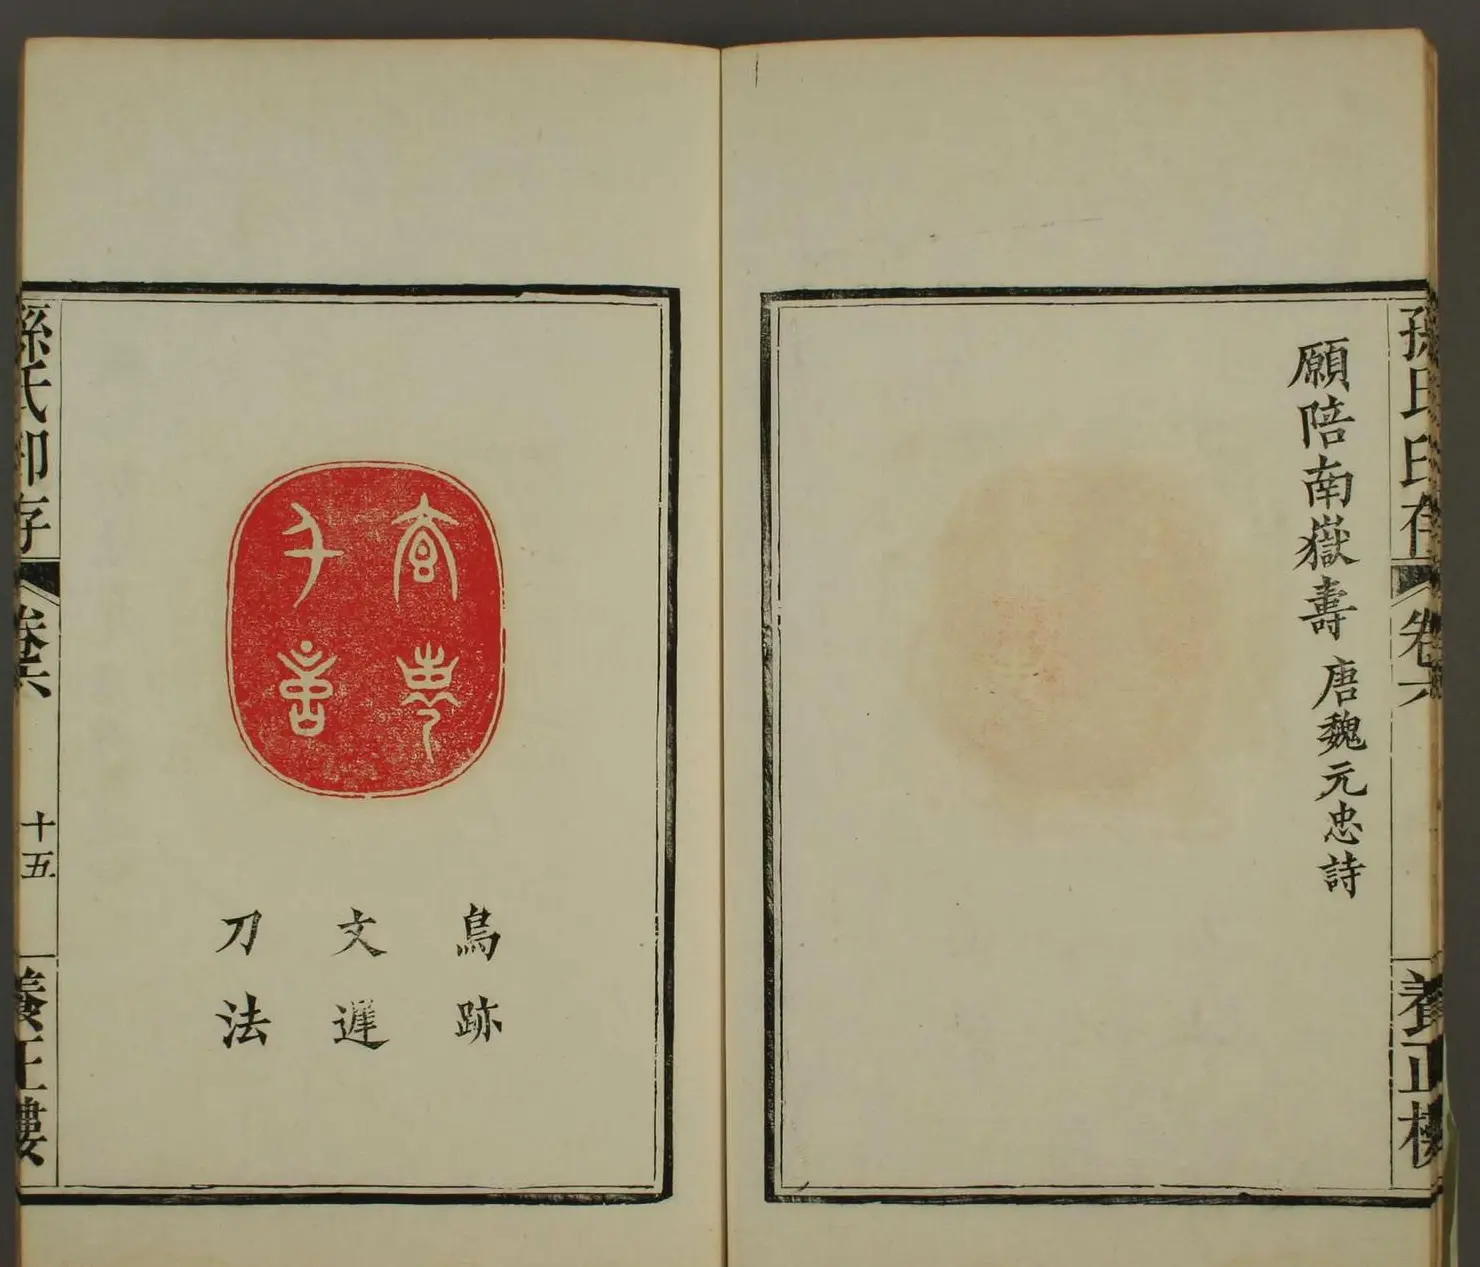 孫氏印存 卷六 養正樓
願陪南嶽壽 唐魏元忠詩
鳥跡
文遲
刀法
孫氏印存 卷六 十五 養正樓